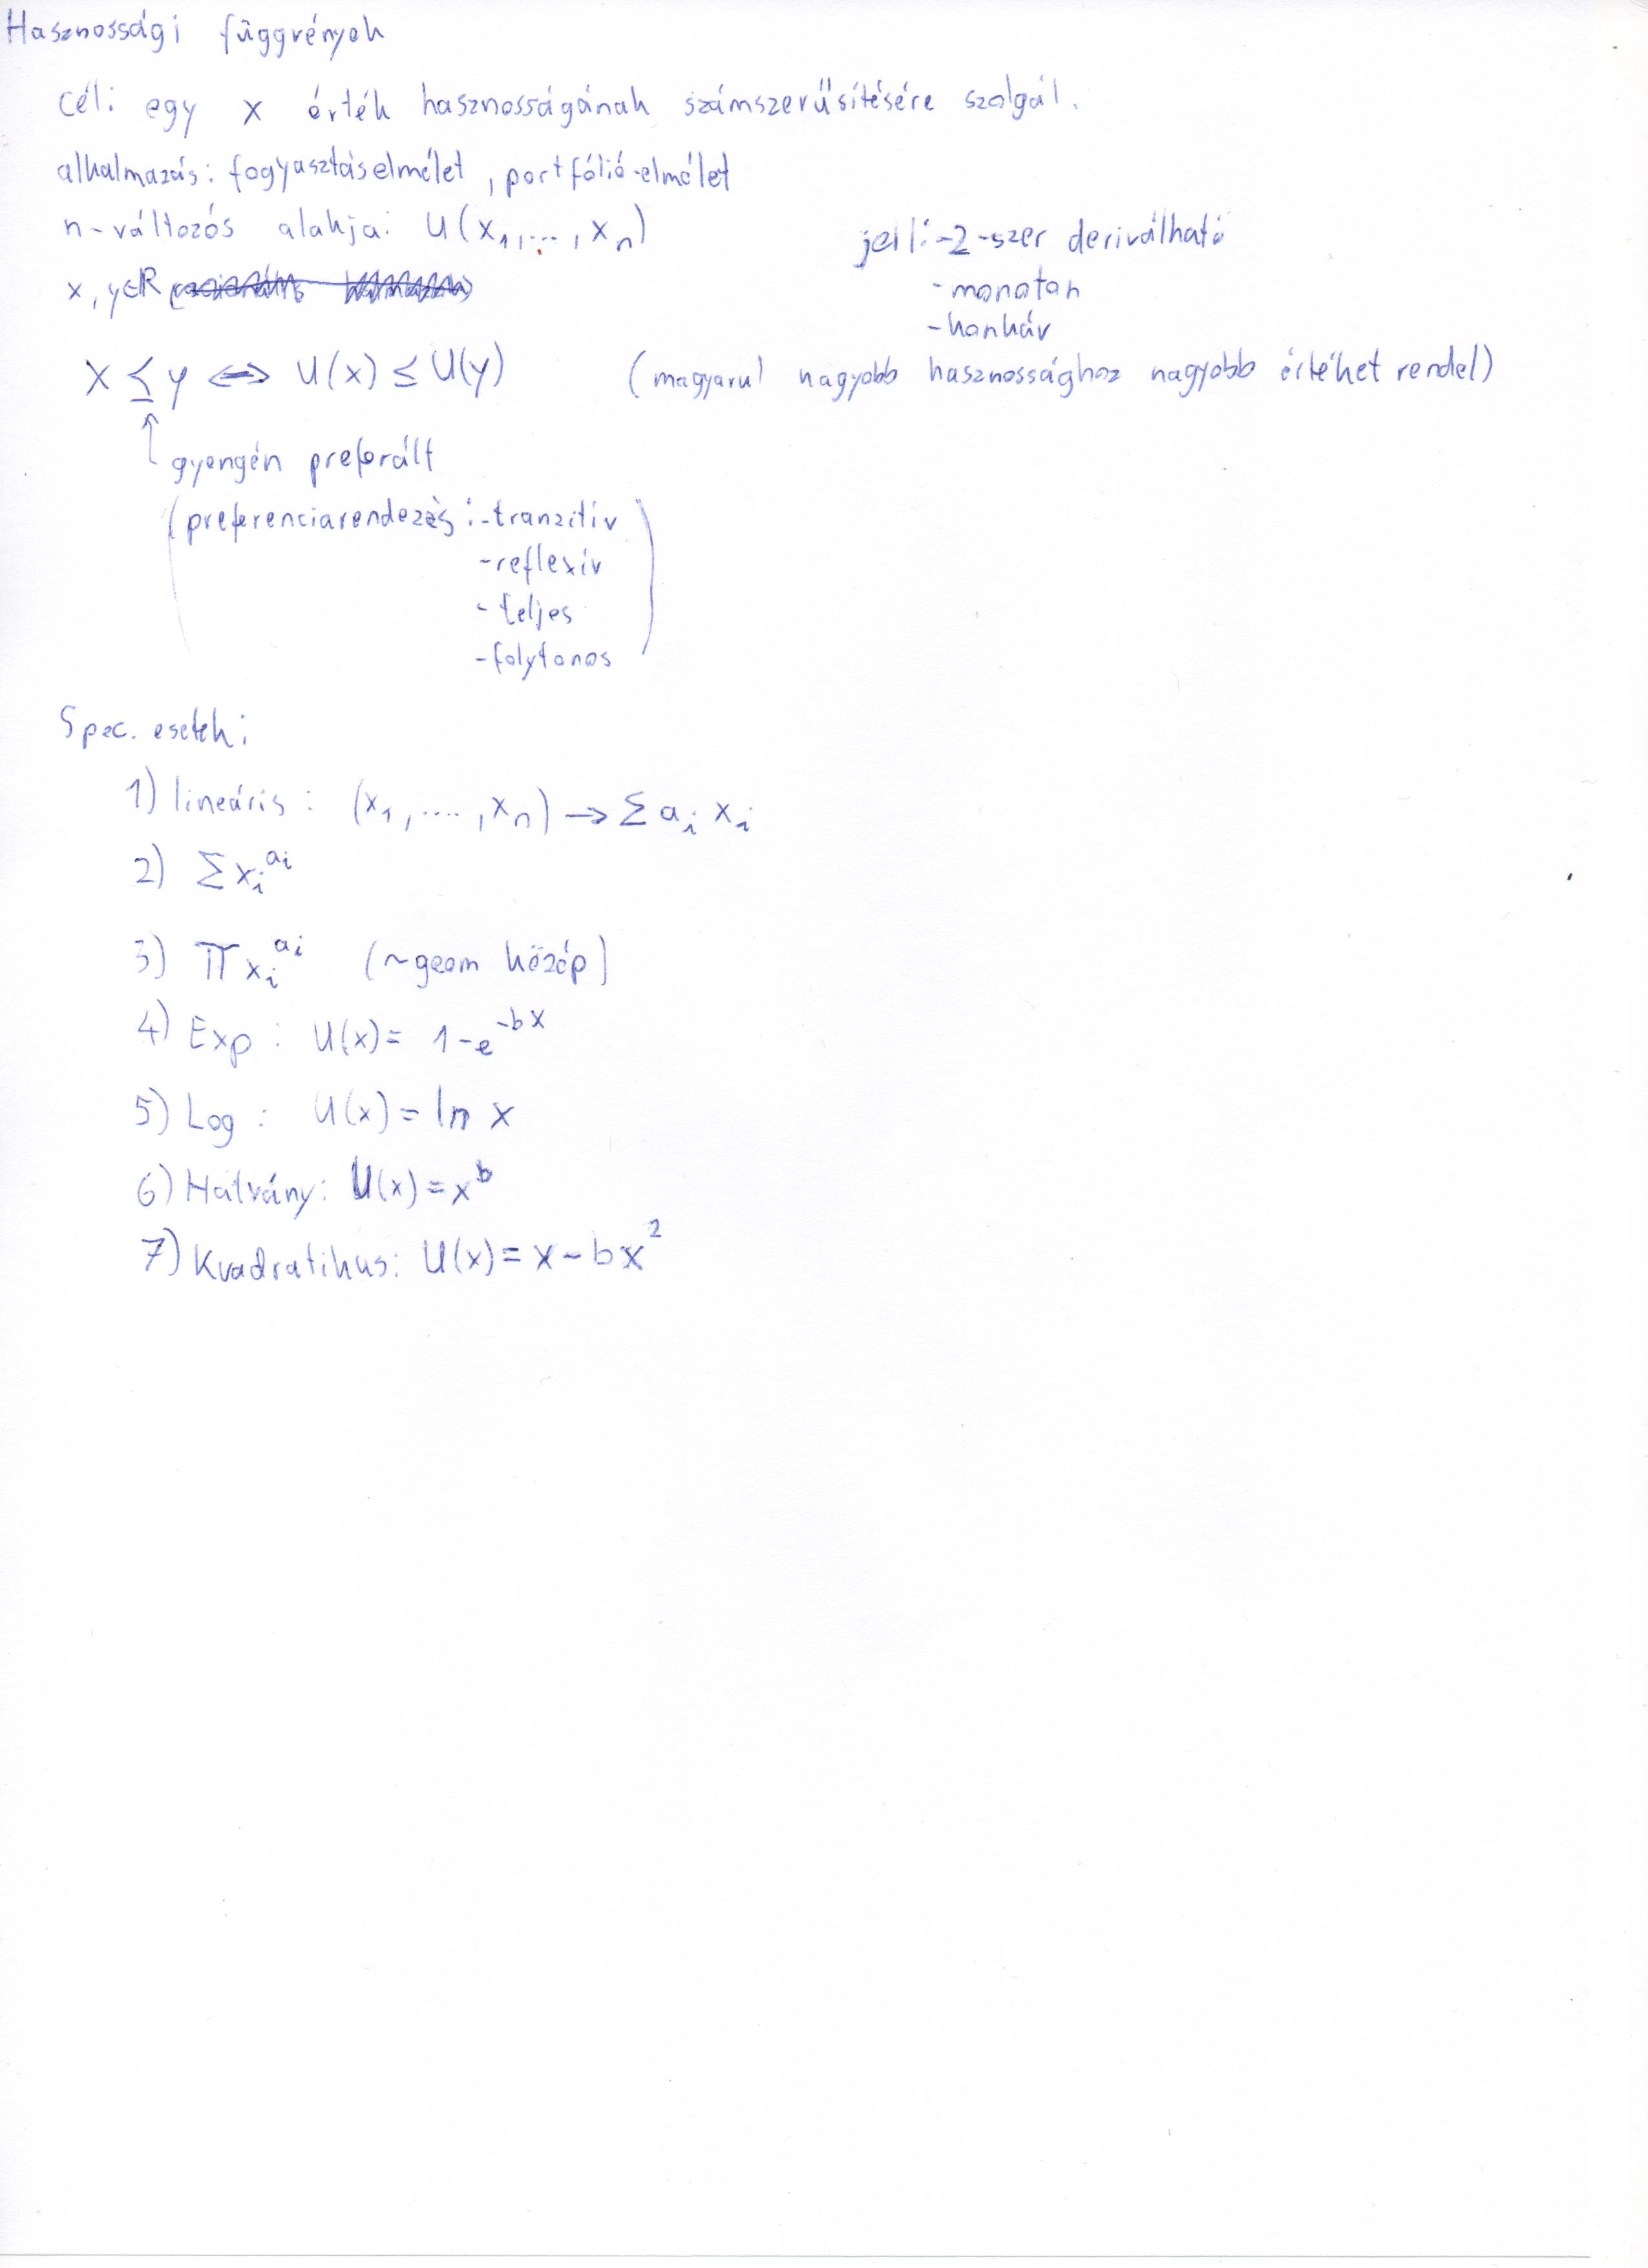 Hasznossági függvények
Cél: egy x érték hasznosságának számszerűsítésére szolgál.
alkalmazás: fogyasztáselmélet, portfólió-elmélet
n-változós alakja: U(x₁,...,xₙ)
jell: -2-szer deriválható
x, y∈R
-monoton
-konkáv
x ≤ y ⟺ U(x) ≤ U(y) (magyarul nagyobb hasznossághoz nagyobb értéket rendel)
↑ gyengén preferált
(preferenciarendezés: -tranzitív
-reflexív
-teljes
-folytonos)
Spec. esetek:
1) lineáris: (x₁,....,xₙ) → Σ aᵢ xᵢ
2) Σ xᵢ^aᵢ
3) Π xᵢ^aᵢ (~geom közép)
4) Exp: U(x) = 1-e^-bx
5) Log: U(x) = ln x
6) Hatvány: U(x) = x^b
7) Kvadratikus: U(x) = x - bx²